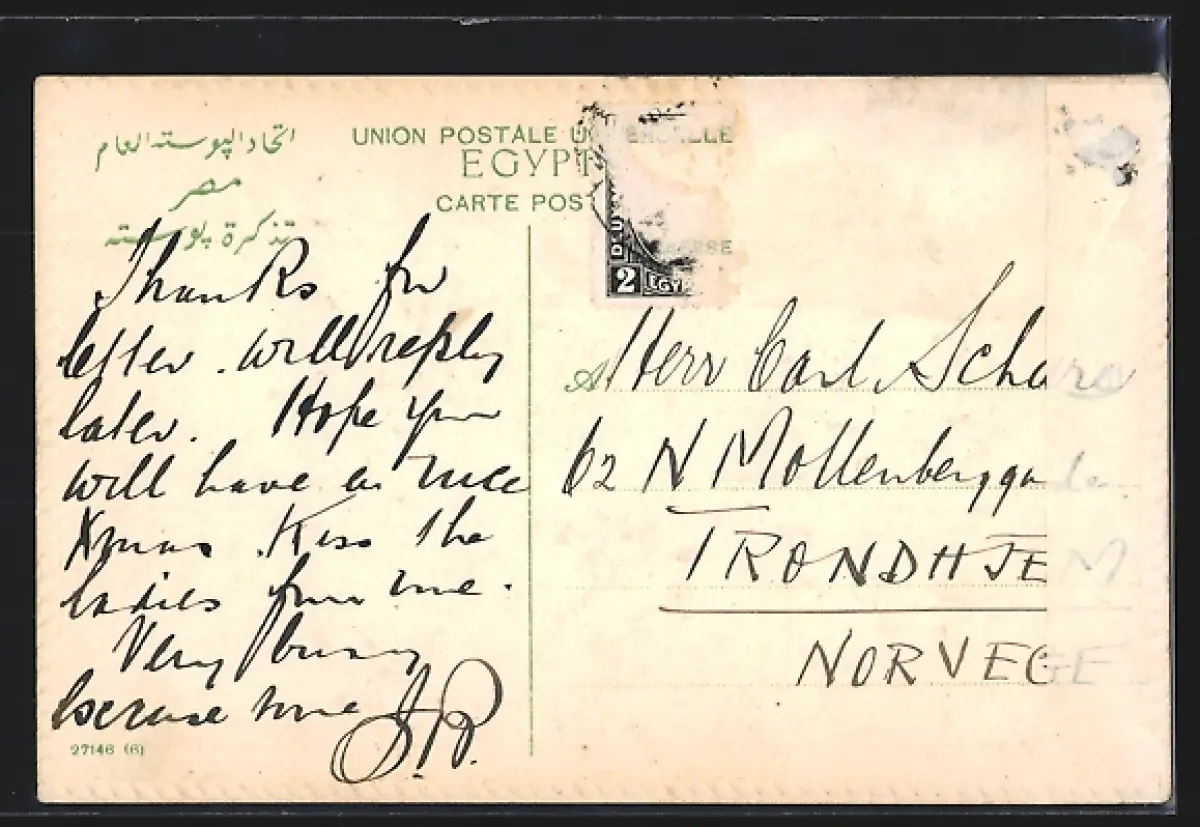 اتحاد البوسته العام
مصر
تذكرة بوسته
UNION POSTALE UNIVERSELLE
EGYPT
CARTE POS
ADRESSE
2 EGYP
Thanks for
letter. will reply
later. Hope you
will have a nice
Xmas. Kiss the
ladies from me.
Very busy
because
27146 (6)
A Herr Carl
62 N Mollenberggada
TRONDHJEM
NORVEGE